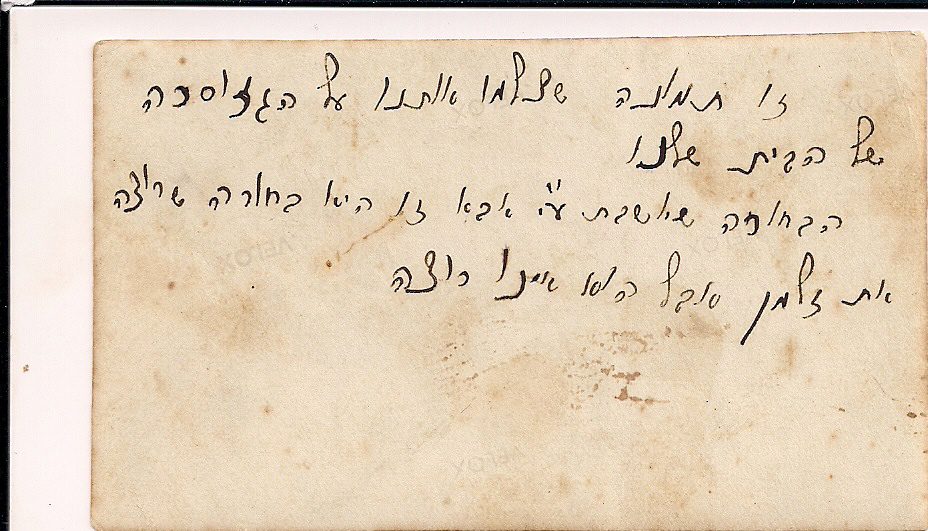 זו תמונה שצלמו אותנו על הגזוסטרה
של הבית שלנו
הבחורה שיושבת ע"י אבא זו היא בחורה שרוצה
את זלמן אבל הוא אינו רוצה